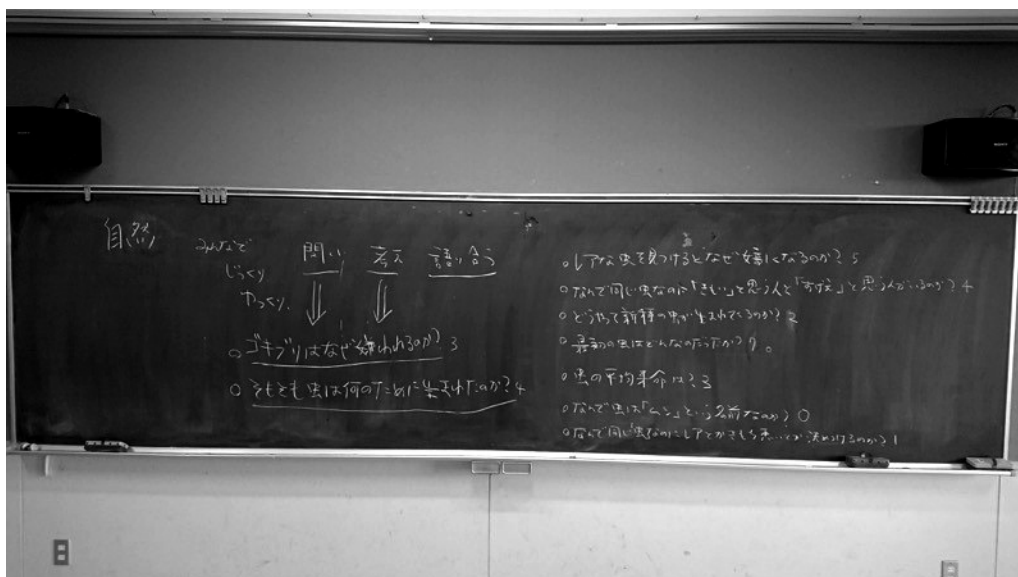 自然
みんなで
じっくり
ゆっくり
問い 考え 語り合う
○ ゴキブリはなぜ嫌われるのか? 3
○ そもそも虫は何のために生まれたのか? 4
○ レアな虫を見つけるとなぜ嬉しくなるのか? 5
○ なんで同じ虫なのに「きもい」と思う人と「すげえ」と思う人がいるのか? 4
○ どうやって新種の虫が生まれてくるのか? 2
○ 最初の虫はどんなのだったか?
○ 虫の平均寿命は? 3
○ なんで虫は「ムシ」という名前なのか? 0
○ なんで同じ虫なのにレアとか
SONY